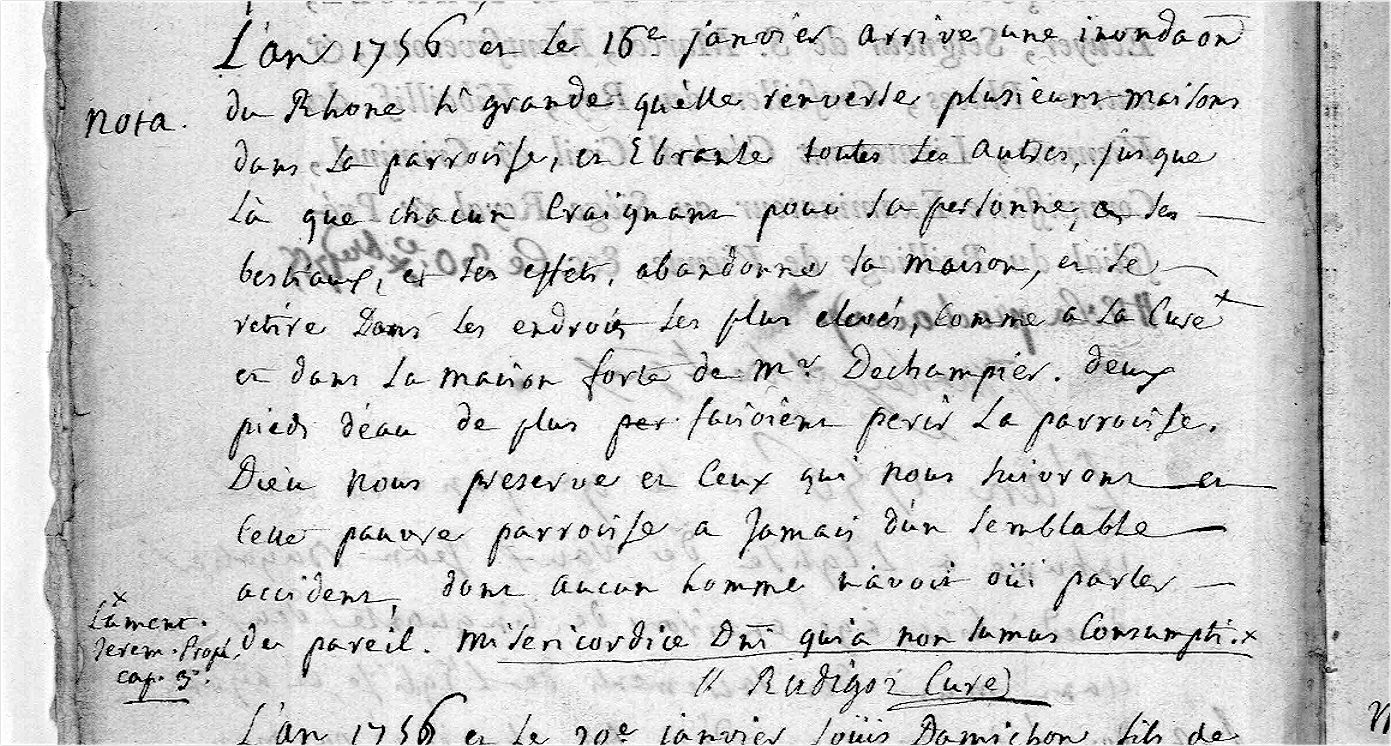 L'an 1756 et le 16e janvier arrive une inondaon
Nota. du Rhone si grande quèlle renverse plusieurs maisons
dans la parroisse, et Ebranle toutes les autres, jusque
là que chacun Craignant pour sa personne, et ses
bestiaux, et ses effets, abandonne sa maison, et se
retire Dans les endroits les plus elevés, Comme a la Cure
et dans la maison forte de Mr Dechampier. deux
pieds déau de plus per faisoient perir la parroisse.
Dieu nous preserve et Ceux qui nous suivront en
Cette pauvre parroisse a Jamais dún semblable
accident, dont aucun homme návoit oüi parler
de pareil. Misericordiae Dni quia non sumus Consumpti. x
x Lament. Jerem. Proph. cap. 3°.
Rudigoz Curé
L'an 1756 et le 20e janvier loüis Damichon fils de